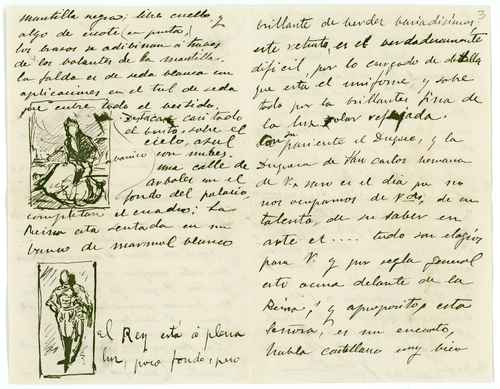 mantilla negra, libre cuello y
algo de escote (en punta)
los brazos se adivinan á traves
de los volantes de la mantilla.
la falda es de seda blanca con
aplicaciones en el tul de seda
que cubre todo el vestido.
Destaca casi todo
el busto sobre el
cielo, azul
con nubes.
una calle de
arboles en el
fondo del palacio,
completan el cuadro; La
Reina está sentada en un
banco de marmol blanco
El Rey está á plena
luz, poco fondo, pero
3
brillante de verdes variadisimos
este retrato, es el verdaderamente
dificil, por lo cargado de detalle
que está el uniforme, y sobre
todo por la brillantez fisica de
la luz solar reflejada.
Con su pariente el Duque, y la
Duquesa de San Carlos hermana
de V, raro es el dia que no
nos ocupamos de Vdes, de su
talento, de su saber en
arte et.... todo son elogios
para V. y por regla general
esto acaece delante de la
Reina, y aproposito, esta
Señora, es un encanto,
habla castellano muy bien